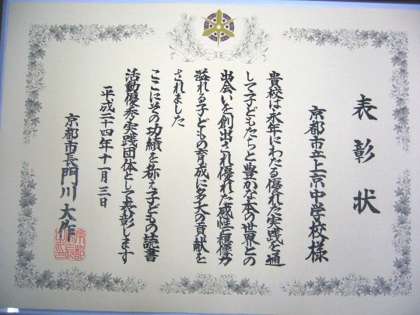 表彰状
京都市立上京中学校様
貴校は永年にわたる優れた実践を通
して子どもたちと豊かな本の世界との
出会いを創出され優れた感性と想像力
溢れる子どもの育成に多大の貢献を
されました
ここにその功績を称え子どもの読書
活動優秀実践団体として表彰します
平成二十四年十一月三日
京都市長門川大作